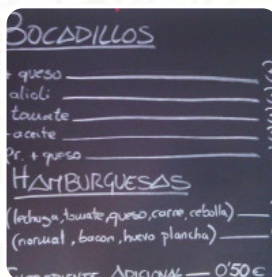 BOCADILLOS
+ queso
alioli
tomate
aceite
+ queso
HAMBURGUESAS
(lechuga, tomate, queso, carne, cebolla)
(normal, bacon, huevo plancha)
ADICIONAL 0'50€